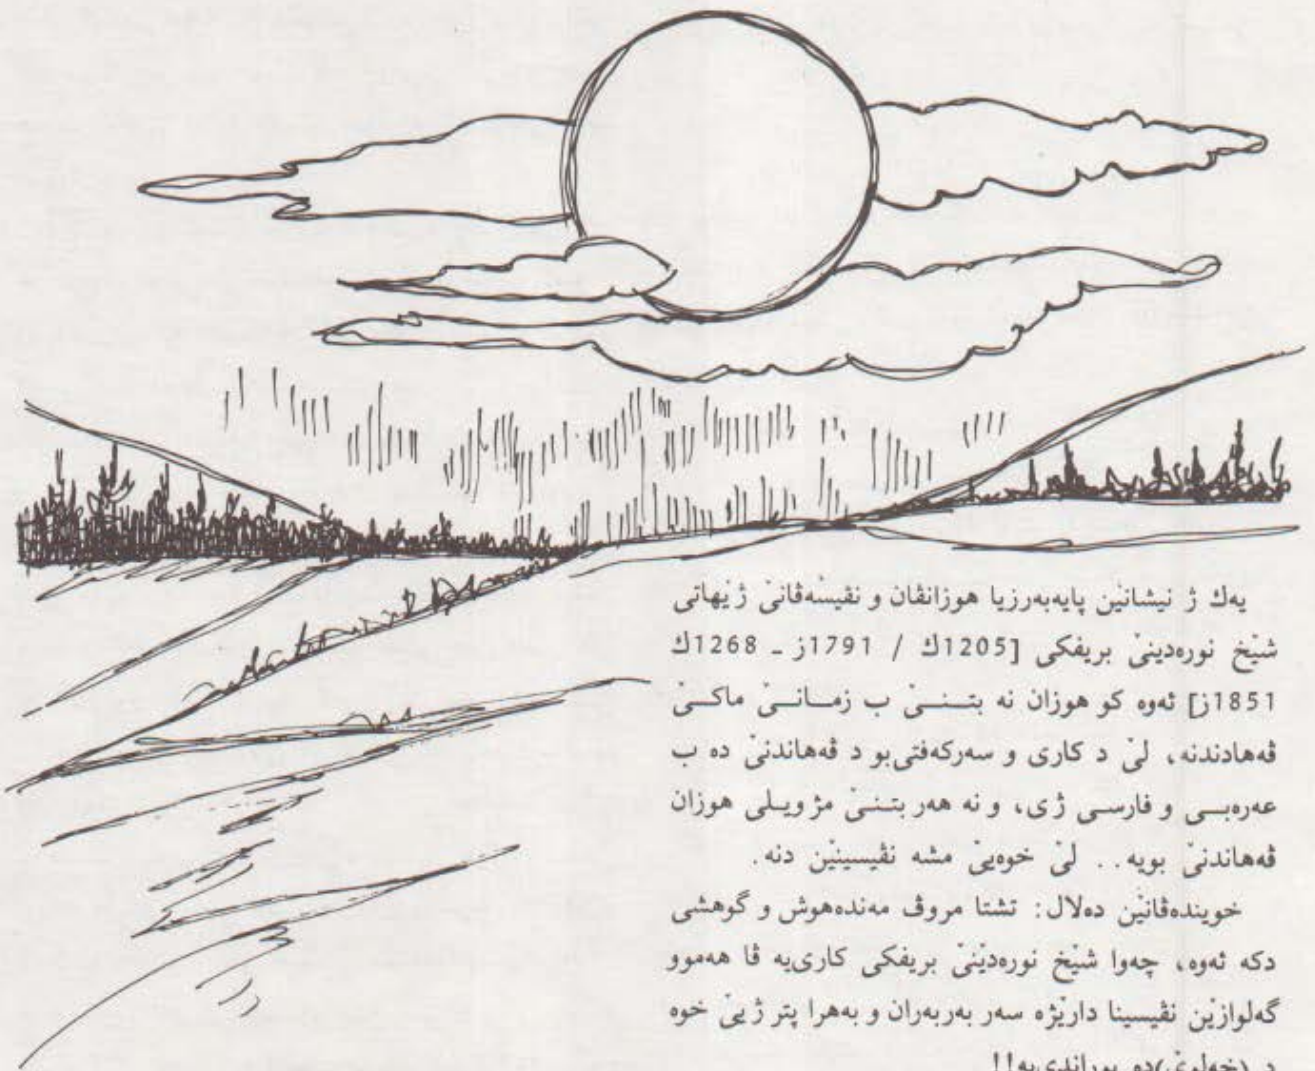 یەك ژ نیشانێن پایەبەرزیا هوزانڤان و نڤیسەڤانێ ژێهاتی
شێخ نورەدینێ بریفکی [1205ك / 1791ز ـ 1268ك
1851ز] ئەوە کو هوزان نە بتــنــێ ب زمــانــێ ماکــێ
ڤەهاندنە، لێ د کاری و سەرکەفتی‌بو د ڤەهاندنێ دە ب
عەرەبــی و فارســی ژی، و نە هەر بتــنــێ مژویــلی هوزان
ڤەهاندنێ بویە.. لێ خوەیێ مشە نڤیسینێن دنە.
خویندەڤانێن دەلال: تشتا مروڤ مەندەهوش و گوهشی
دکە ئەوە، چەوا شێخ نورەدێنێ بریفکی کاری‌یە ڤا هەموو
گەلوازێن نڤیسینا دارێژە سەر بەربەران و بەهرا پتر ژ یێ خوە
د (خەلوێ)دە بوراندی‌یە!!